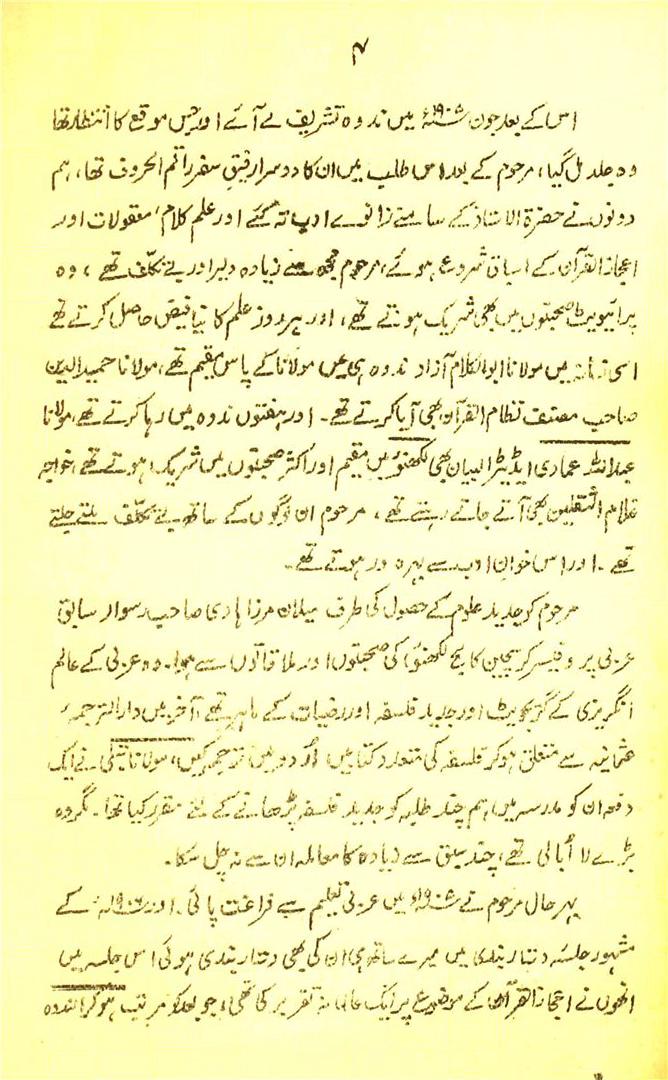 ۴
اس کے بعد جون ۱۹۰۵ء میں ندوہ تشریف لے آئے اور جس موقع کا انتظار تھا
وہ جلد مل گیا، مرحوم کے بعد اس طلب میں ان کا دوسرا رفیق سفر راقم الحروف تھا، ہم
دونوں نے حضرۃ الاستاذ کے سامنے زانوے ادب تہ کئے اور علم کلام، معقولات اور
اعجاز القرآن کے اسباق شروع ہوئے، مرحوم مجھ سے زیادہ دلیر اور بے تکلف تھے، وہ
پرائیویٹ صحبتوں میں بھی شریک ہوتے تھے، اور ہر روز علم کا نیا فیض حاصل کرتے تھے
اسی زمانہ میں مولانا ابو الکلام آزاد ندوہ ہی میں مولانا کے پاس مقیم تھے، مولانا حمید الدین
صاحب مصنف نظام القرآن بھی آیا کرتے تھے۔ اور ہفتوں ندوہ میں رہا کرتے تھے، مولانا
عبداللہ عمادی ایڈیٹر البیان بھی لکھنؤ میں مقیم اور اکثر صحبتوں میں شریک ہوتے تھے، خواجہ
غلام الثقلین بھی آتے جاتے رہتے تھے، مرحوم ان لوگوں کے ساتھ بے تکلف ملتے جلتے
تھے۔ اور اس خوان ادب سے بہرہ ور ہوتے تھے۔
مرحوم کو جدید علوم کے حصول کی طرف میلان مرزا ہادی صاحب رسوا سابق
عربی پروفیسر کرسچین کالج لکھنؤ کی صحبتوں اور ملاقاتوں سے ہوا۔ وہ عربی کے عالم
انگریزی کے گریجویٹ اور جدید فلسفہ اور ریاضیات کے ماہر تھے، آخر میں دارالترجمہ
عثمانیہ سے متعلق ہو کر فلسفہ کی متعدد کتابیں اردو میں ترجمہ کیں، مولانا شبلی نے ایک
دفعہ ان کو مدرسہ میں ہم چند طلبہ کو جدید فلسفہ پڑھانے کے لئے مقرر کیا تھا۔ مگر وہ
بڑے لا اُبالی تھے، چند سبق سے زیادہ کا معاملہ ان سے نہ چل سکا۔
بہر حال مرحوم نے میں عربی تعلیم سے فراغت پائی۔ اور کے
مشہور جلسۂ دستار بندی میں میرے ساتھ ہی ان کی بھی دستار بندی ہوئی اس جلسہ میں
انھوں نے اعجاز القرآن کے موضوع پر ایک عالمانہ تقریر کی تھی، جو بعد کو مرتب ہو کر الندوہ